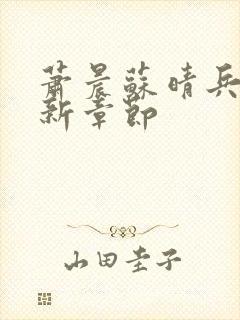 萧晨蘇晴兵
新章節
山田圭子